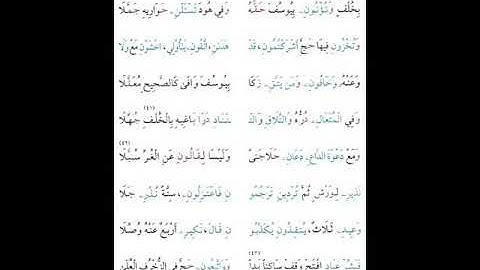 بِخُلْفٍ وَتُؤْتُونِۦ بِيُوسُفَ حَقُّهُ وَفِي هُودَ تَسْئَلْنِۦ حَوَارِيهِ جَمَّلَا
وَتُخْزُونِۦ فِيهَا حَجَّ أَشْرَكْتُمُونِۦ قَدْ هَدَىٰنِۦ اتَّقُونِۦ يَـٰٓأُولِي، اخْشَوْنِۦ مَعْ وَلَا
وَعَنْهُ وَخَافُونِۦ وَمَن يَتَّقِۦ زَكَا بِيُوسُفَ وَافَى كَالصَّحِيحِ مُعَلَّلَا
وَفِي الْمُتَعَالِۦ دُرُّهُ وَالتَّلَاقِ وَالتْـ تَنَادِ دَرَا بَاغِيهِ بِالْخُلْفِ جُهَّلَا (٤١)
وَمَعْ دَعْوَةَ الدَّاعِۦ دَعَانِۦ حَلَا جَنًى وَلَيْسَا لِقَالُونٍ عَنِ الْغُرِّ سُبَّلَا (٤٢)
نَذِيرِۦ لِوَرْشٍ ثُمَّ تُرْدِينِۦ تَرْجُمُو نِ فَاعْتَزِلُونِۦ سِتَّةٌ نُذُرِۦ جَلَا
وَعِيدِۦ ثَلَاثٌ، يُنقِذُونِۦ يُكَذِّبُو نِ قَالَ، نَكِيرِۦ أَرْبَعٌ عَنْهُ وُصِّلَا
فَبَشِّرْ عِبَادِۦ افْتَحْ وَقِفْ سَاكِنًا يَدًا (٤٣) وَوَاتَّبِعُونِۦ حَجَّ فِي الزُّخْرُفِ الْعَلَا